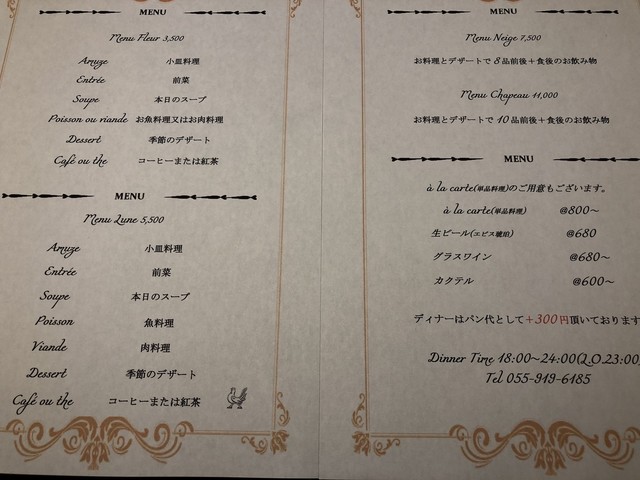 MENU
Menu Fleur 3,500
Amuze 小皿料理
Entrée 前菜
Soupe 本日のスープ
Poisson ou viande お魚料理又はお肉料理
Dessert 季節のデザート
Café ou the コーヒーまたは紅茶
MENU
Menu Lune 5,500
Amuze 小皿料理
Entrée 前菜
Soupe 本日のスープ
Poisson 魚料理
Viande 肉料理
Dessert 季節のデザート
Café ou the コーヒーまたは紅茶
MENU
Menu Neige 7,500
お料理とデザートで8品前後+食後のお飲み物
Menu Chapeau 11,000
お料理とデザートで10品前後+食後のお飲み物
MENU
à la carte(単品料理)のご用意もございます。
à la carte(単品料理) @800~
生ビール(エビス琥珀) @680
グラスワイン @680~
カクテル @600~
ディナーはパン代として+300円頂いております
Dinner Time 18:00~24:00(L.O.23:00)
Tel 055-919-6185